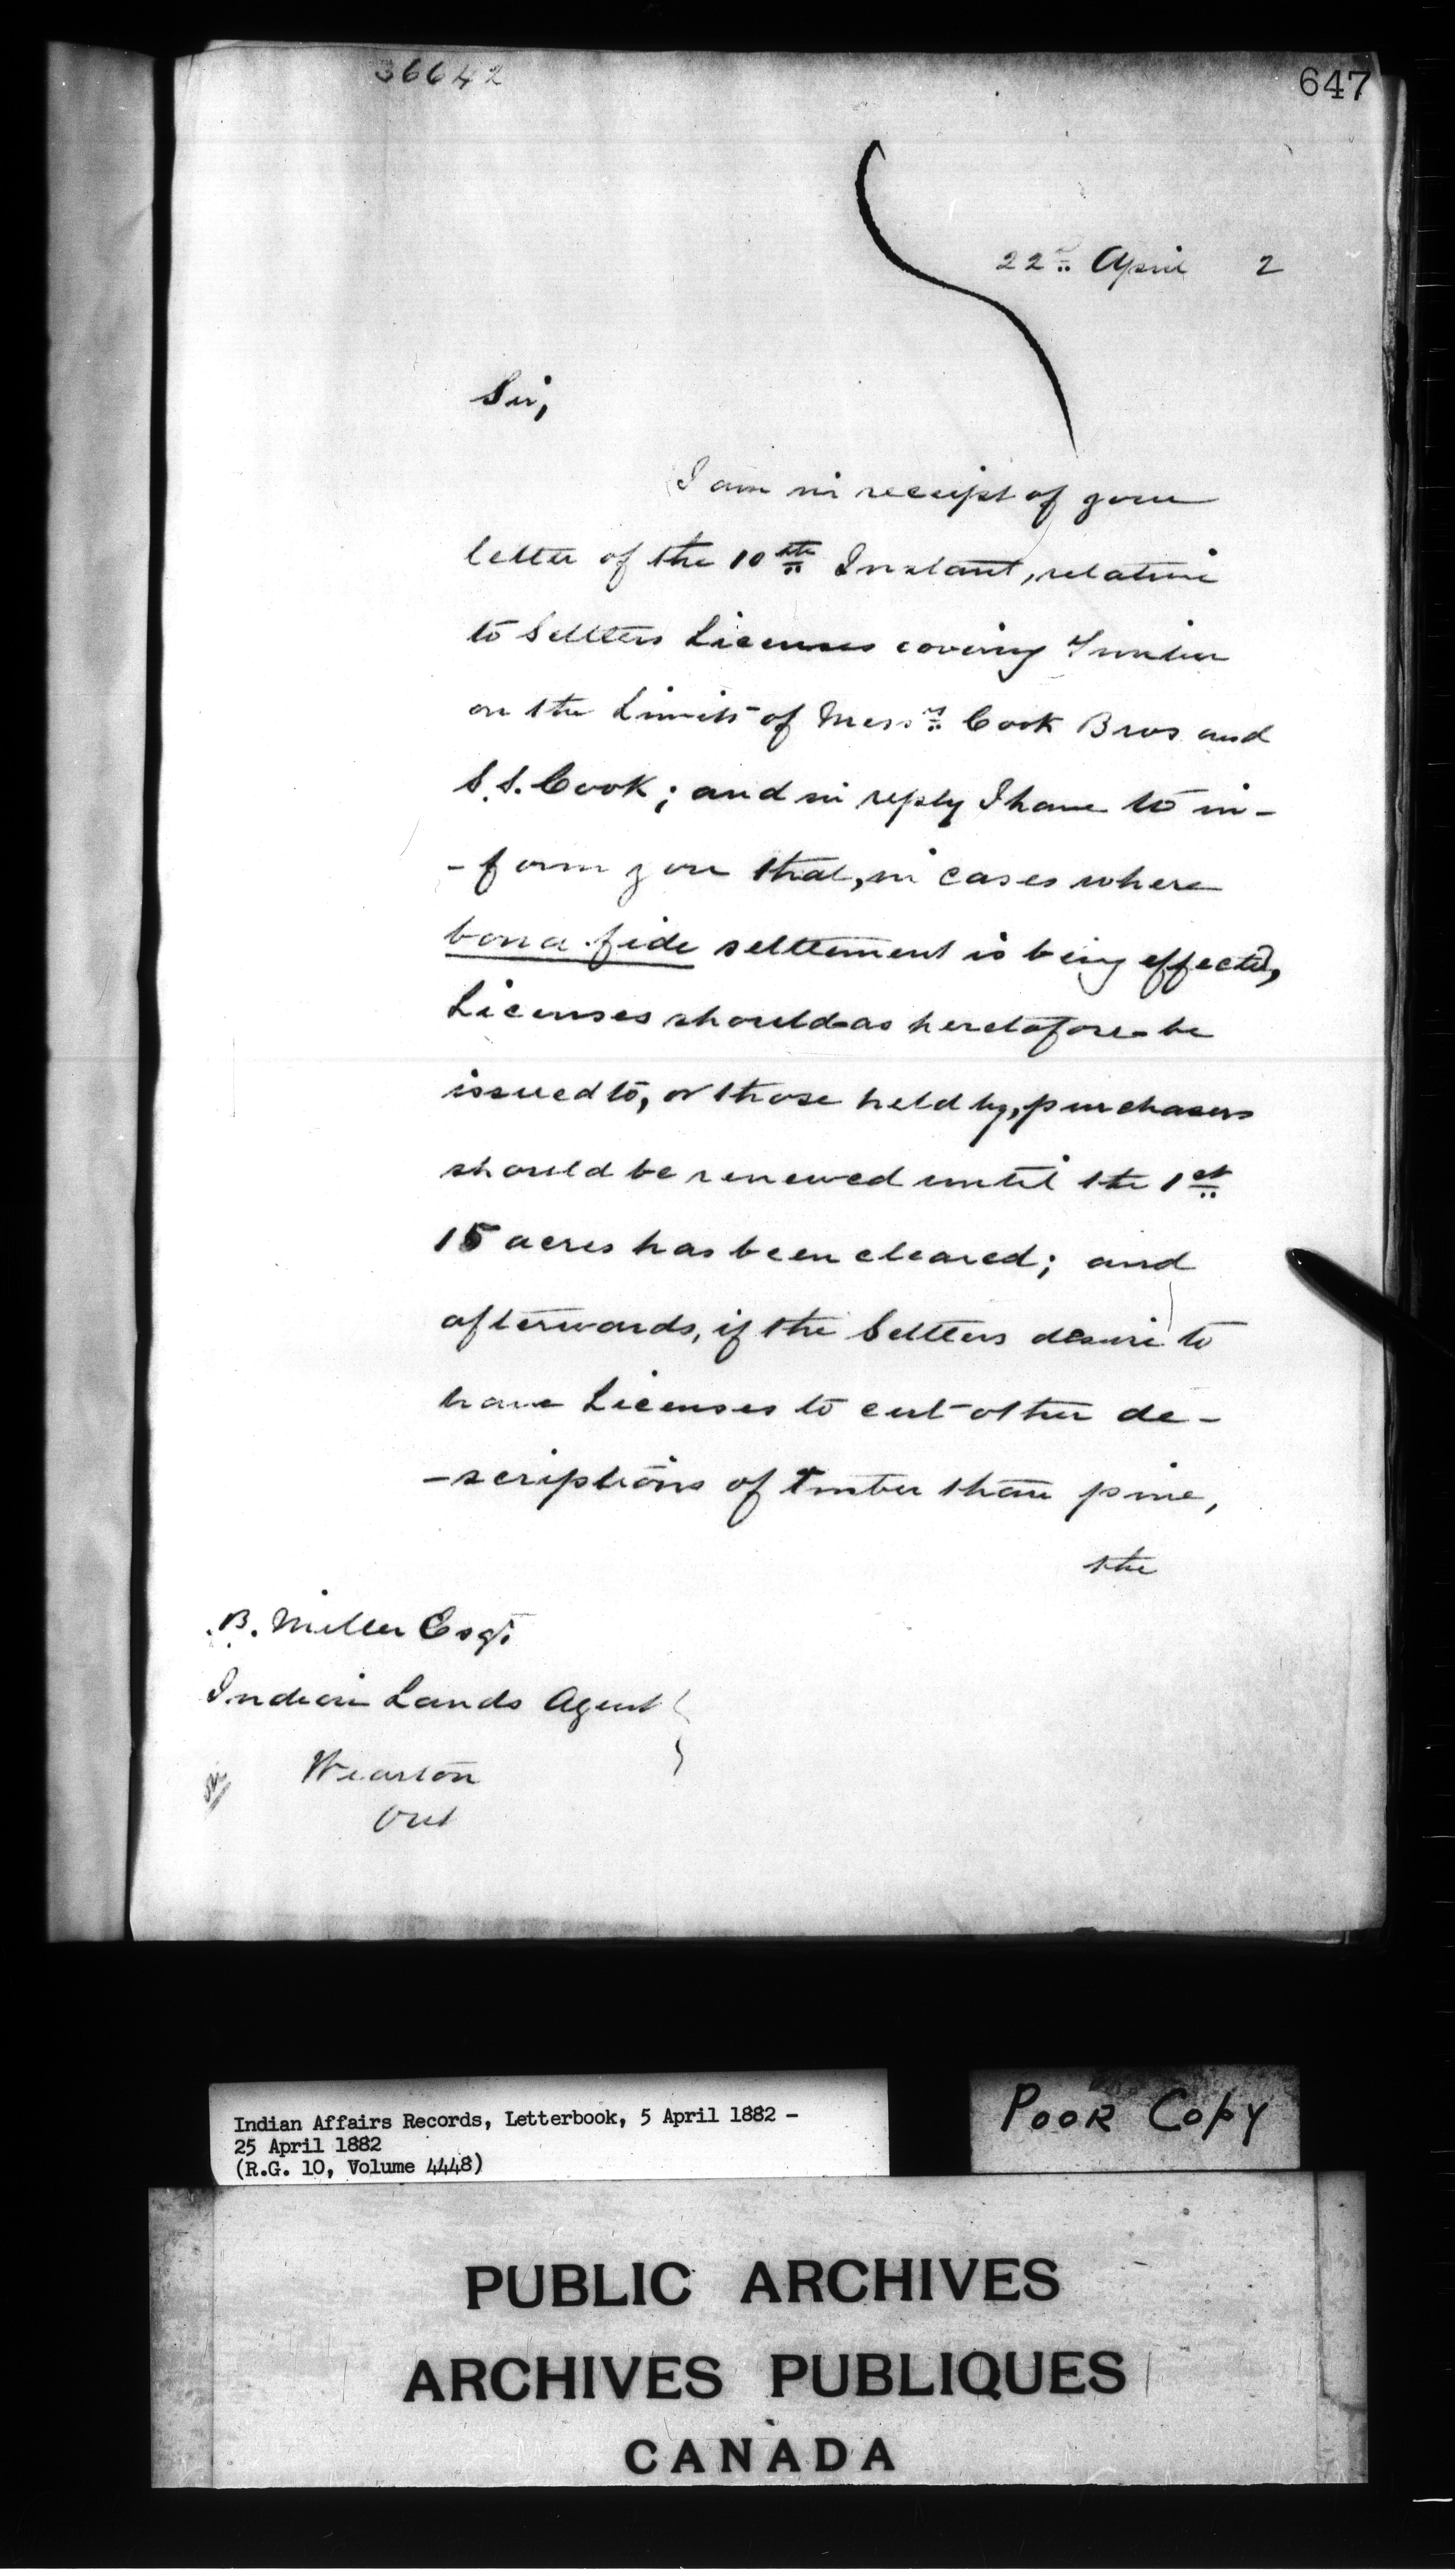 36642
647
22nd April 2
Sir,
I am in receipt of your
letter of the 10th Instant, relative
to Settlers Licenses covering Timber
on the Limits of Messrs Cook Bros and
S.S. Cook; and in reply I have to in-
-form you that, in cases where
bona fide settlement is being effected,
Licenses should as heretofore be
issued to, or those held by, purchasers
should be renewed until the 1st
15 acres has been cleared; and
afterwards, if the Settlers desire to
have Licenses to cut other de-
-scriptions of timber than pine,
the
B. Miller Esqr
Indian Lands Agent
Wiarton
Ont
Indian Affairs Records, Letterbook, 5 April 1882 -
25 April 1882
(R.G. 10, Volume 4448)
POOR COPY
PUBLIC ARCHIVES
ARCHIVES PUBLIQUES
CANADA